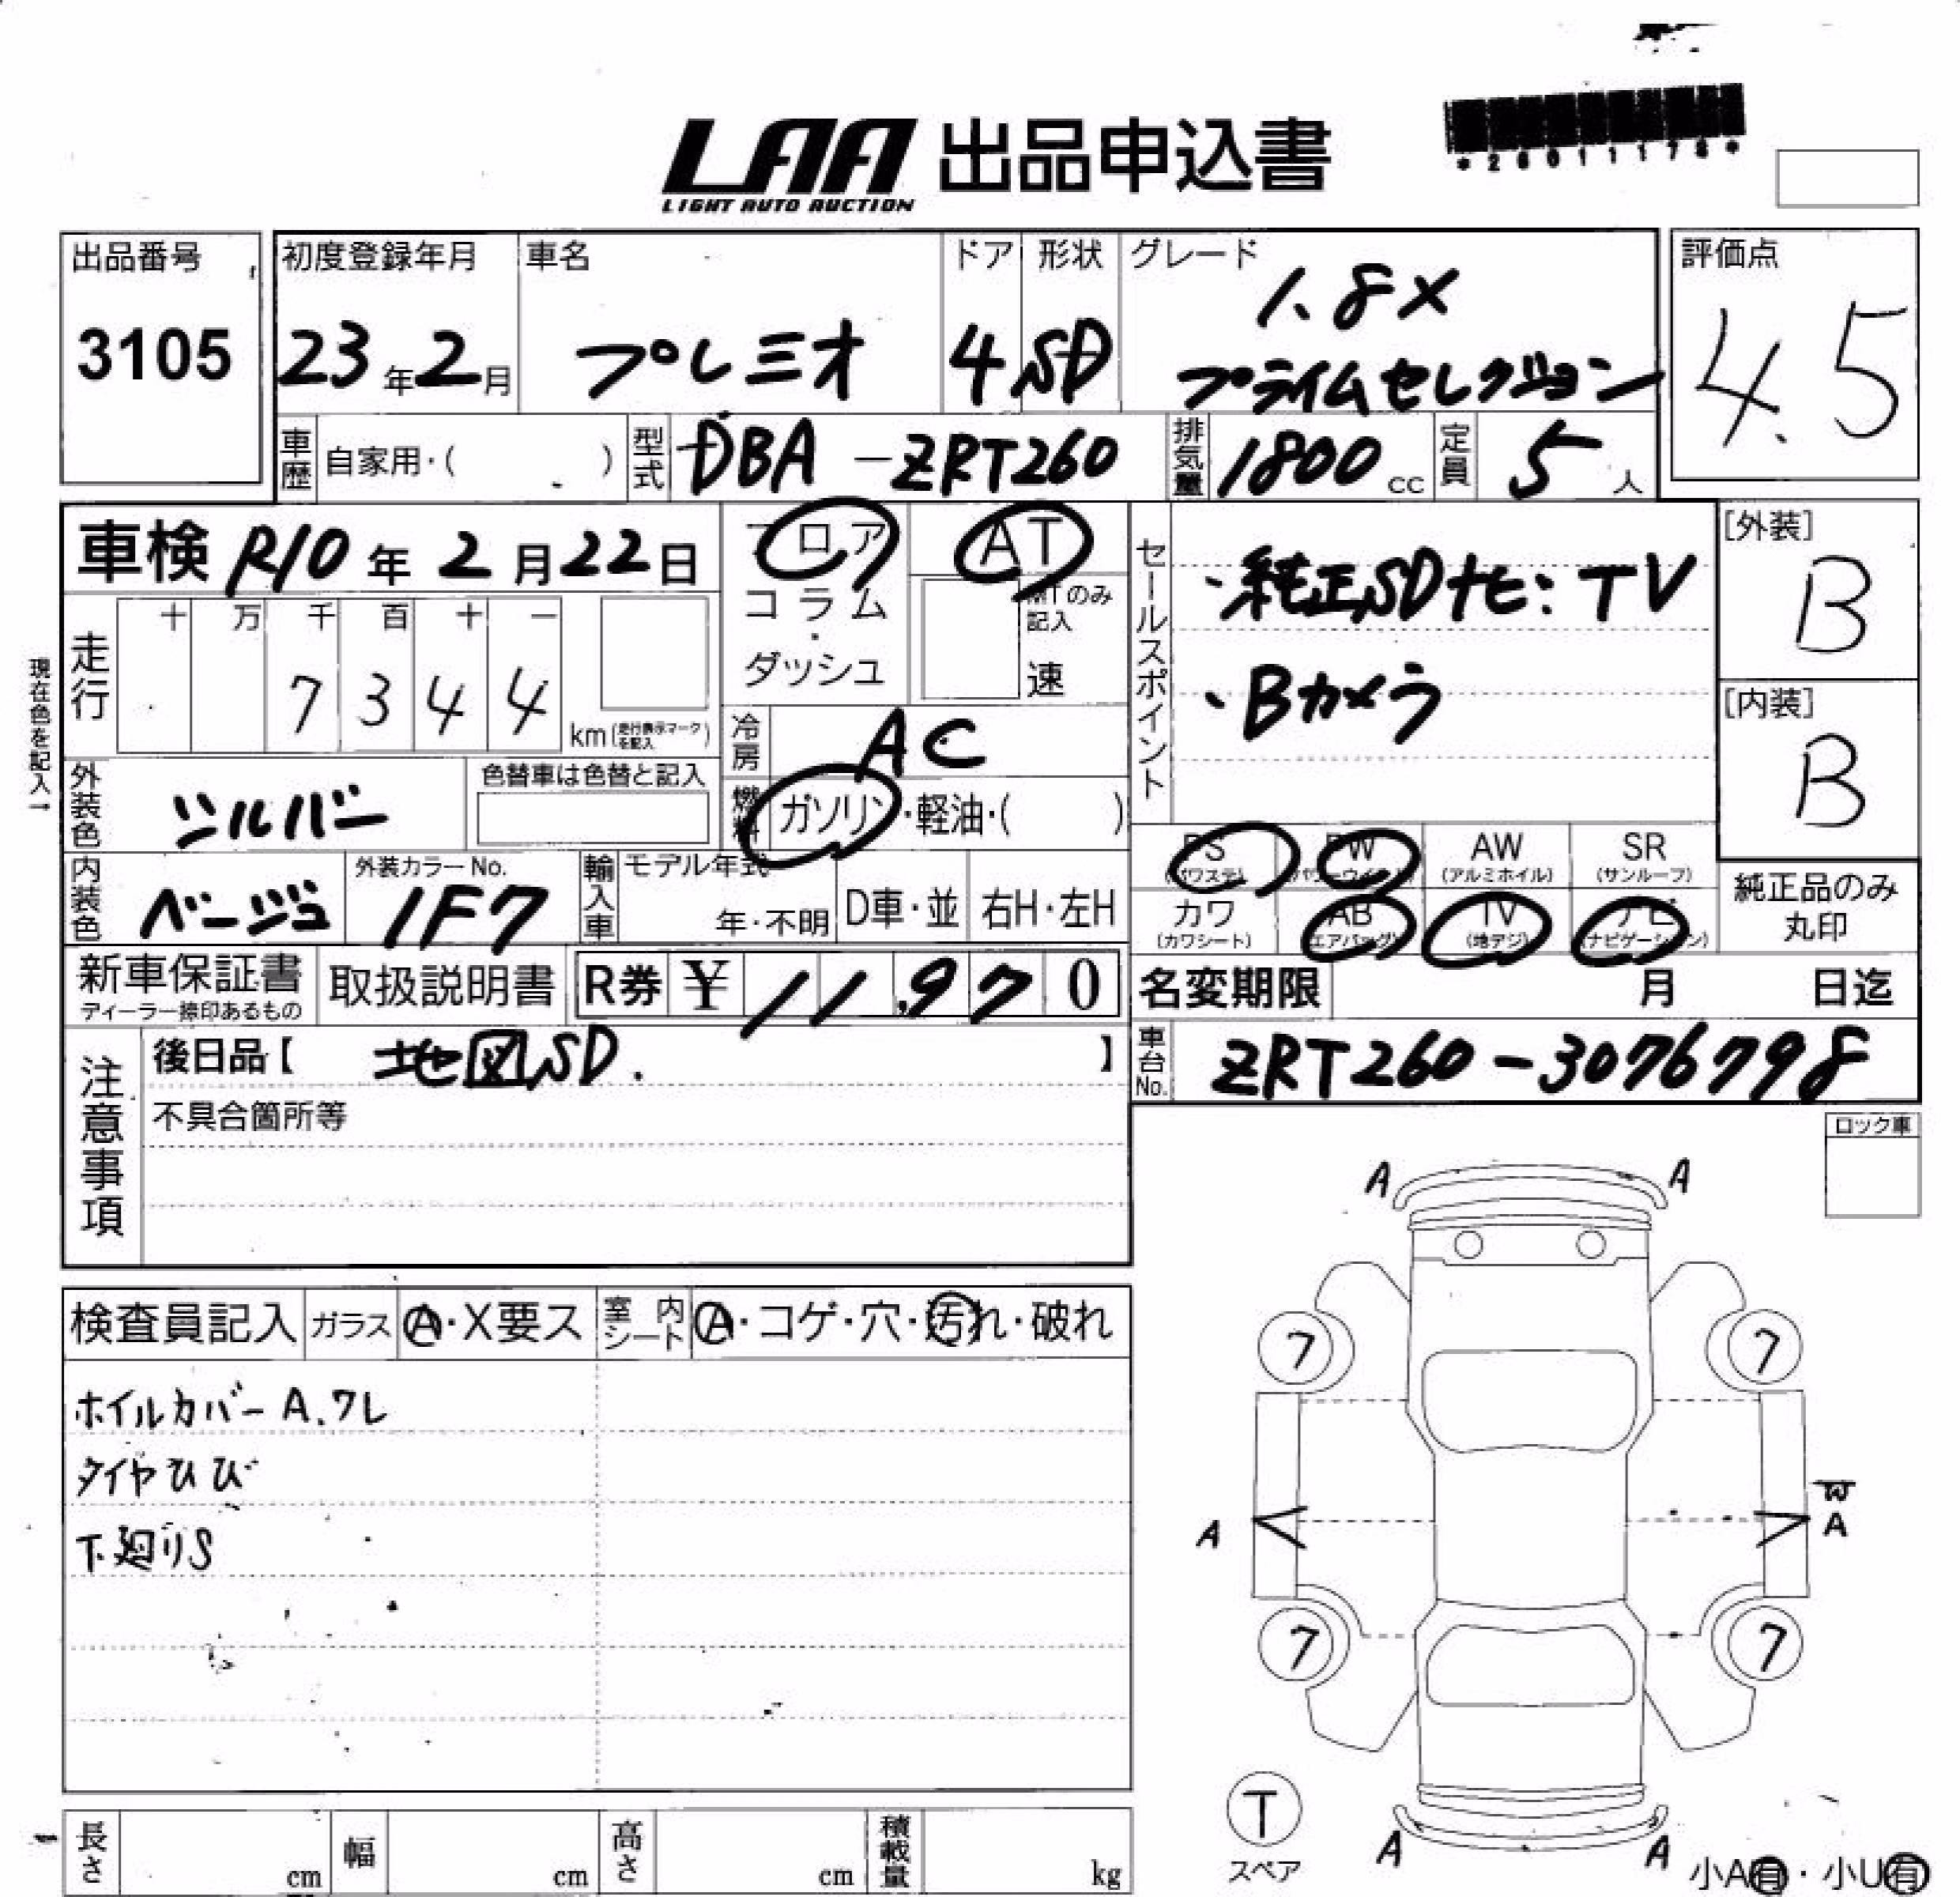 LAA 出品申込書
LIGHT AUTO AUCTION
*26011178*
出品番号
3105
初度登録年月
23年2月
車名
プレミオ
ドア
4
形状
SD
グレード
1.8X
プライムセレクション
評価点
4.5
車歴 自家用・( )
型式 DBA-ZRT260
排気量 1800cc
定員 5人
車検 R10年2月22日
フロア
コラム
・
ダッシュ
AT
MTのみ記入
速
セールスポイント
・純正SDナビ:TV
・Bカメラ
[外装]
B
[内装]
B
走行
十 万 千 百 十 一
7 3 4 4
km(走行表示マークを記入)
現在色を記入→
冷房 AC
外装色 シルバー
色替車は色替と記入
燃料 ガソリン・軽油・( )
内装色 ベージュ
外装カラーNo.
1F7
輸入車
モデル年式
年・不明
D車・並
右H・左H
PS (パワステ)
PW (パワーウインド)
AW (アルミホイル)
SR (サンルーフ)
カワ (カワシート)
AB (エアバッグ)
TV (地デジ)
ナビ (ナビゲーション)
純正品のみ
丸印
新車保証書
ディーラー捺印あるもの
取扱説明書
R券 ¥ 11,970
名変期限 月 日迄
注意事項
後日品【 地図SD. 】
不具合箇所等
車台No. ZRT260-3076798
ロック車
検査員記入
ガラス A・X要ス
室内シート A・コゲ・穴・汚れ・破れ
ホイルカバーA.ワレ
タイヤひび
下廻りS
A A
7 7
W
A A
7 7
T
スペア
A A
小A有・小U有
長さ cm
幅 cm
高さ cm
積載量 kg